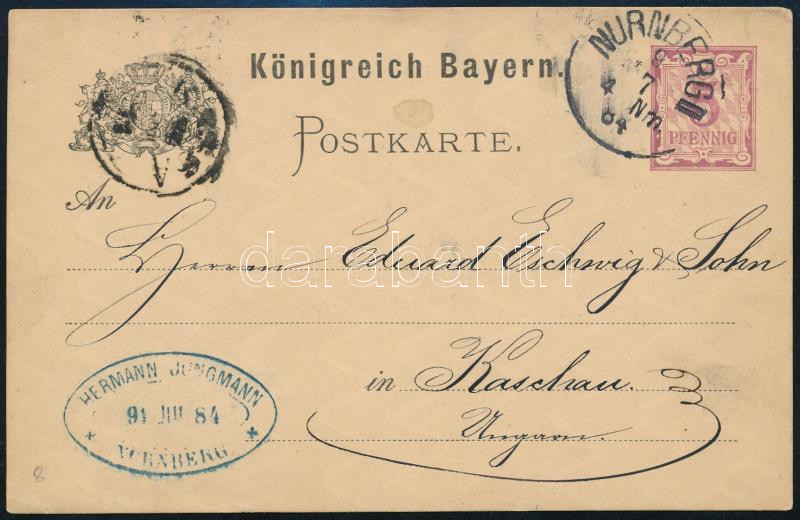 Königreich Bayern.
POSTKARTE.
NURNBERG II
7
Nm.
84
5
PFENNIG
An
Herren Eduard Eschwig & Sohn
darabanth.com
in Kaschau.
Ungarn.
HERMANN JUNGMANN
84
NÜRNBERG
8